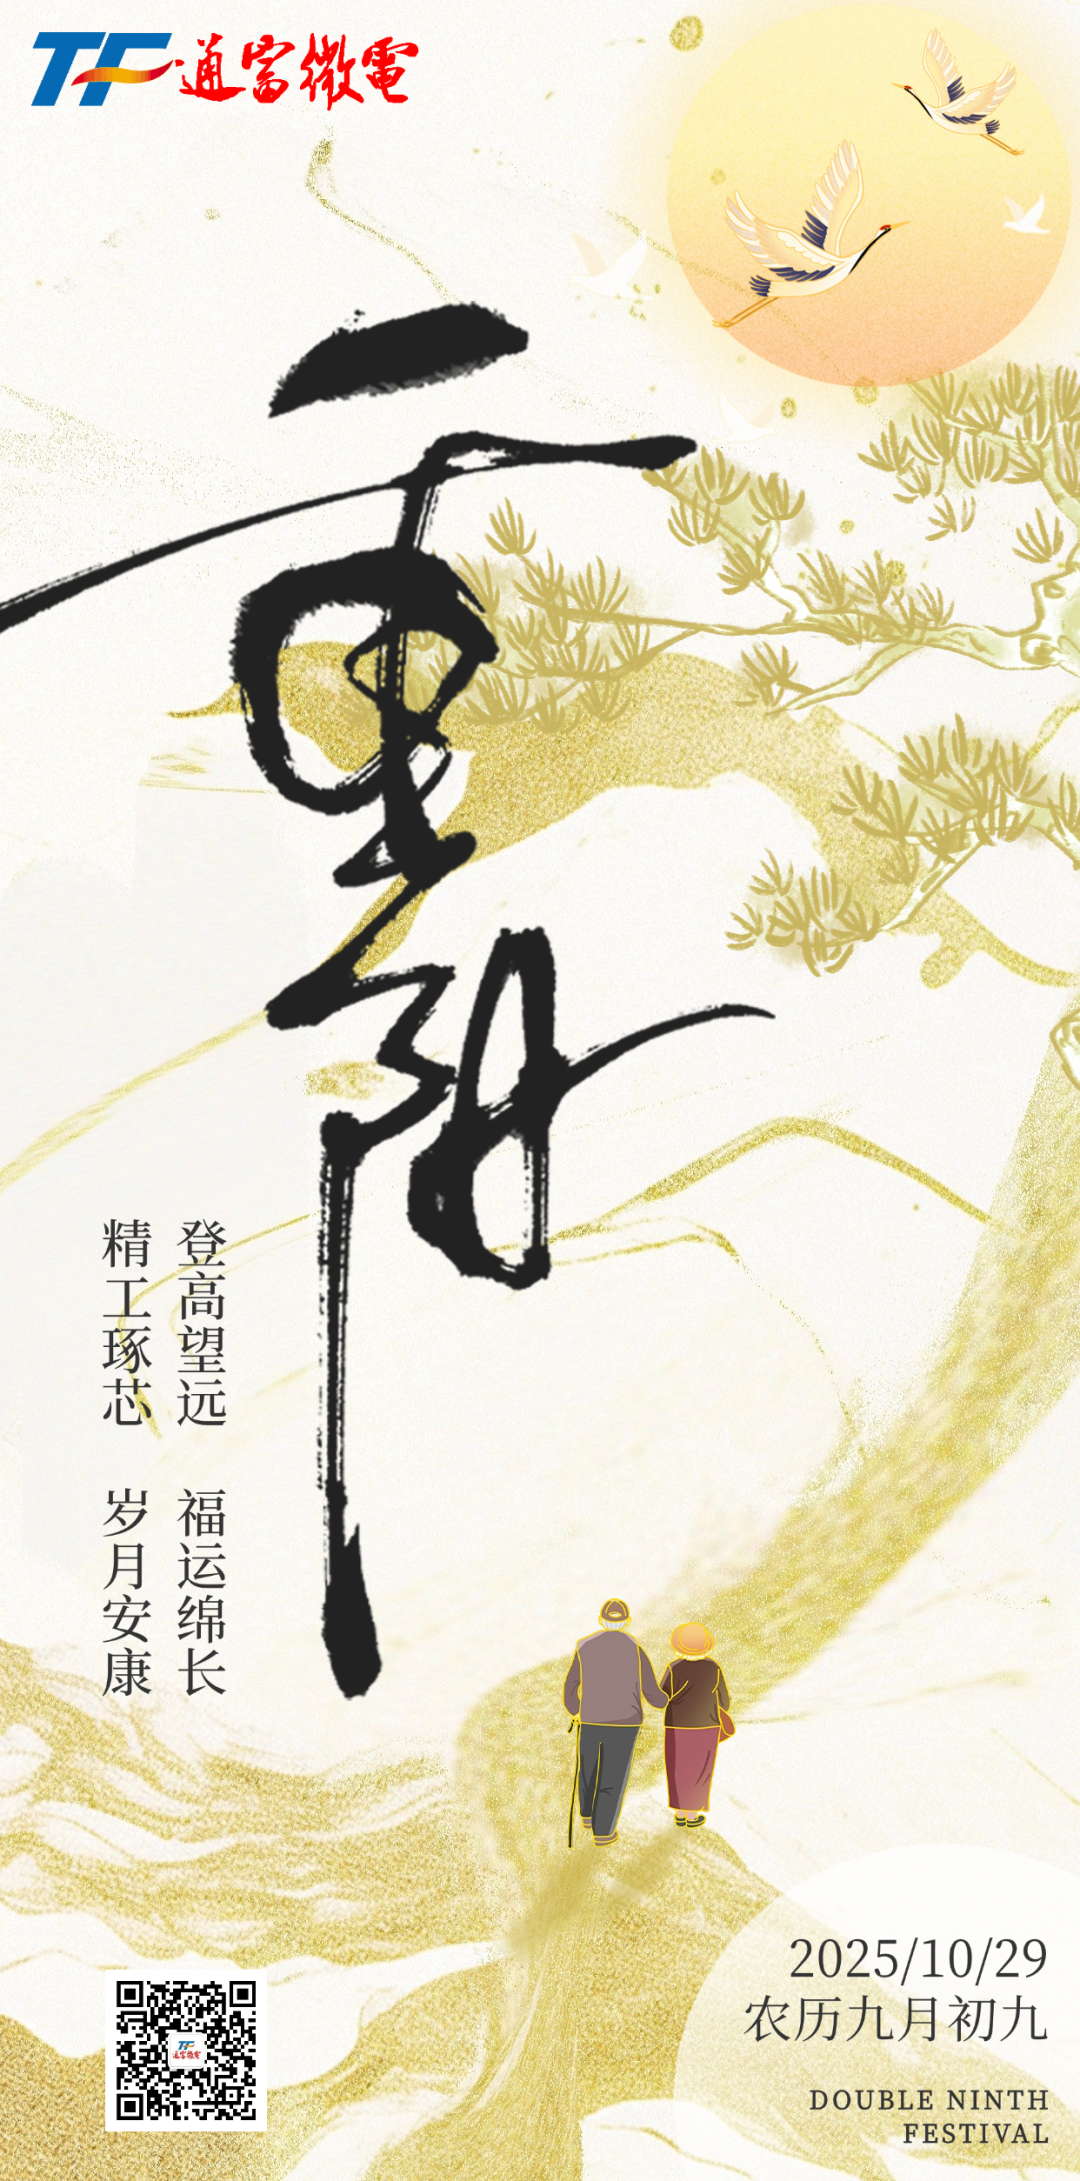 TF通富微電
重阳
登高望远 福运绵长
精工琢芯 岁月安康
2025/10/29
农历九月初九
DOUBLE NINTH
FESTIVAL
TF
通富微電